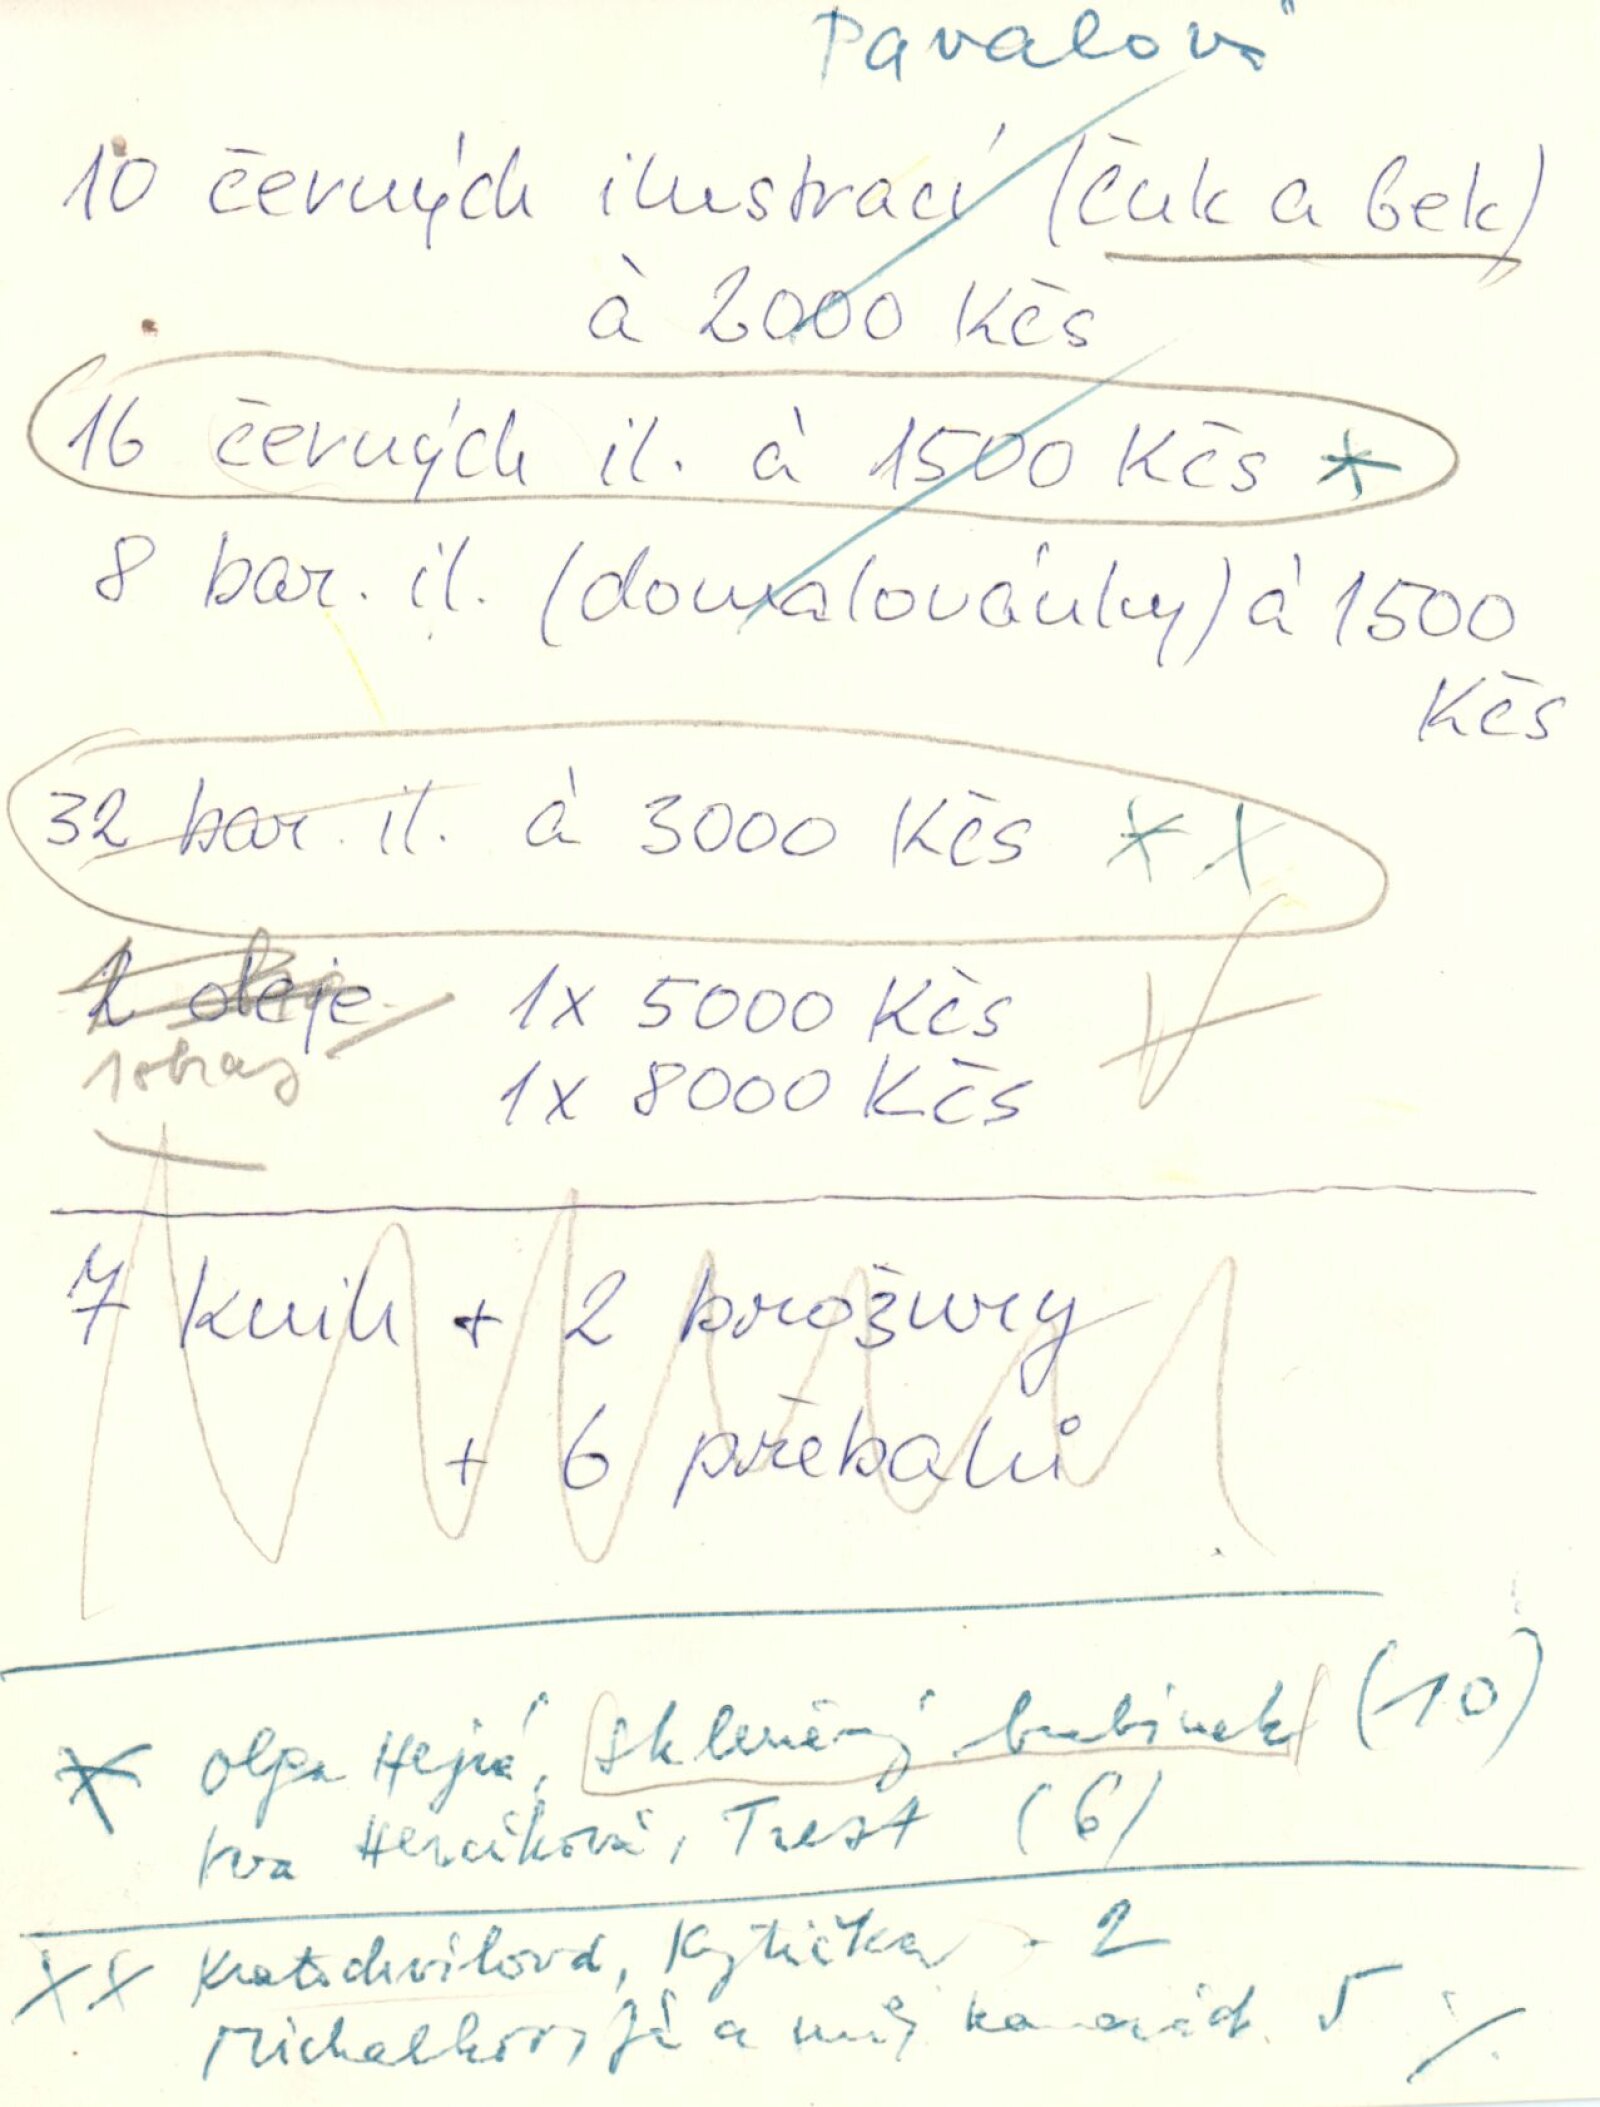 Pavalová
10 černých ilustrací (čuk a bek)
à 2000 Kčs
16 černých il. à 1500 Kčs *
8 bar. il. (domalovánky) à 1500
Kčs
32 bar. il. à 3000 Kčs * X
2 oleje 1x 5000 Kčs
1 obraz 1x 8000 Kčs
7 knih + 2 brožury
+ 6 přebalů
* Olga Hejná, Skleněný bubínek (10)
Iva Hercíková, Trest (6)
XX Kratochvílová, Kytička - 2
Michalkov, Já a můj kamarád 5 ./.